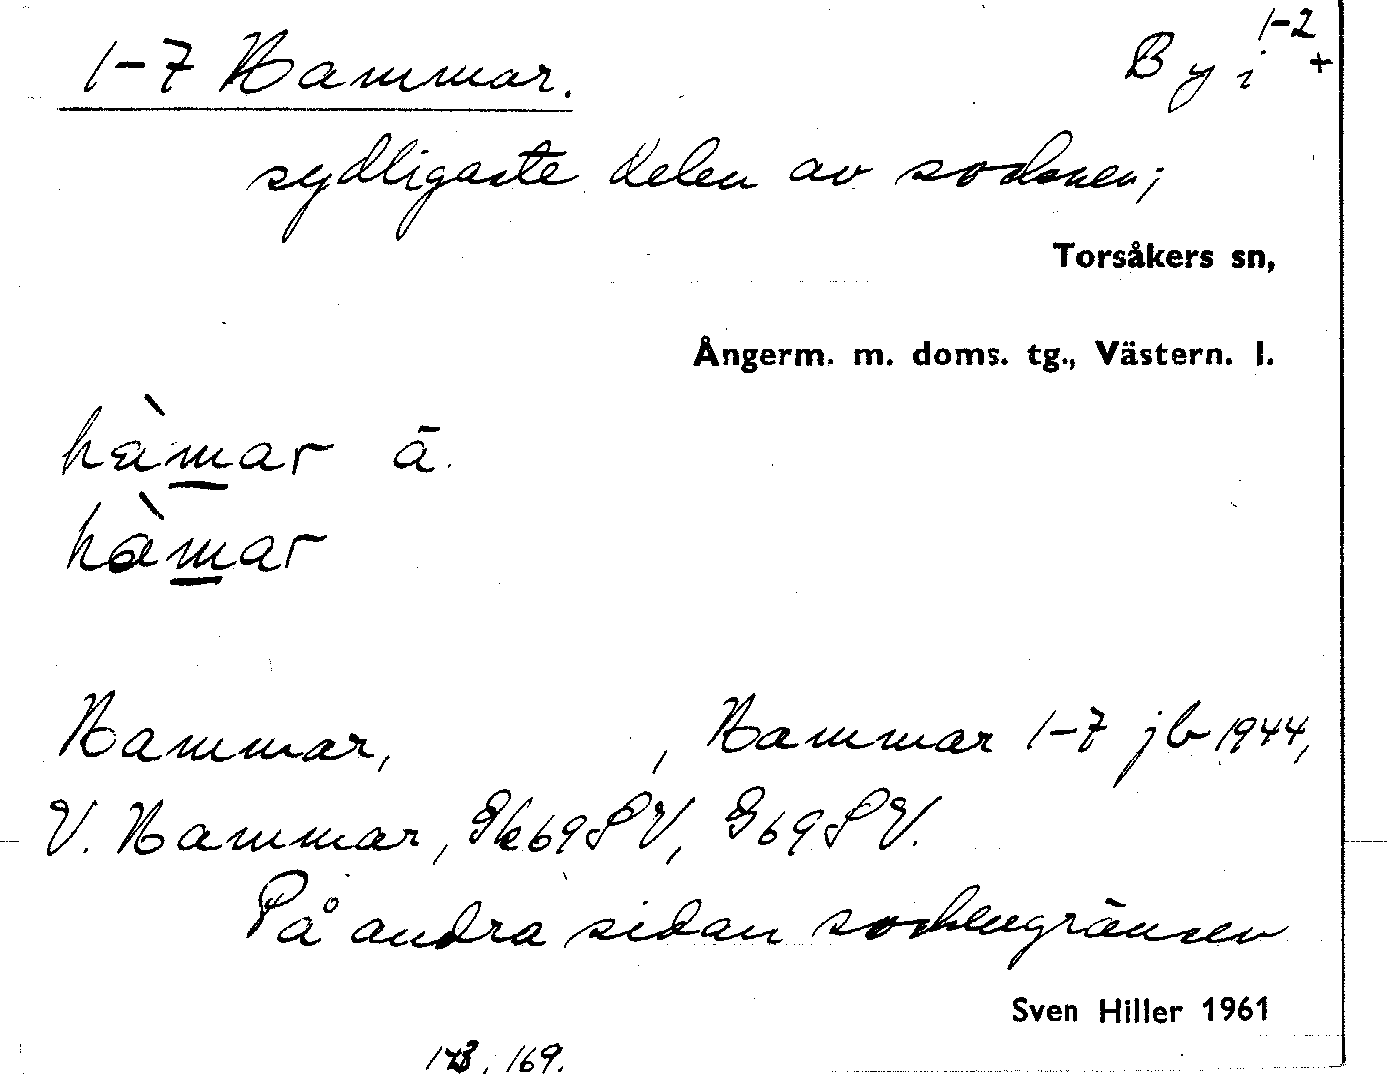 1-2
1-7 Hammar. By i +
sydligaste delen av socknen;
Torsåkers sn,
Ångerm. m. doms. tg., Västern. l.
hàmar ā.
hàmar
Hammar, , Hammar 1-7 jb 1944,
V. Hammar, Gk69SV, G69SV.
På andra sidan sockengränsen
Sven Hiller 1961
169.